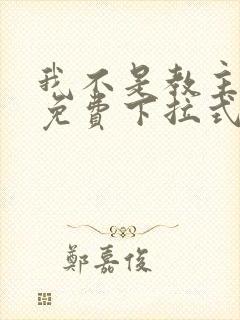 我不是教主
免費下拉式
鄭嘉俊